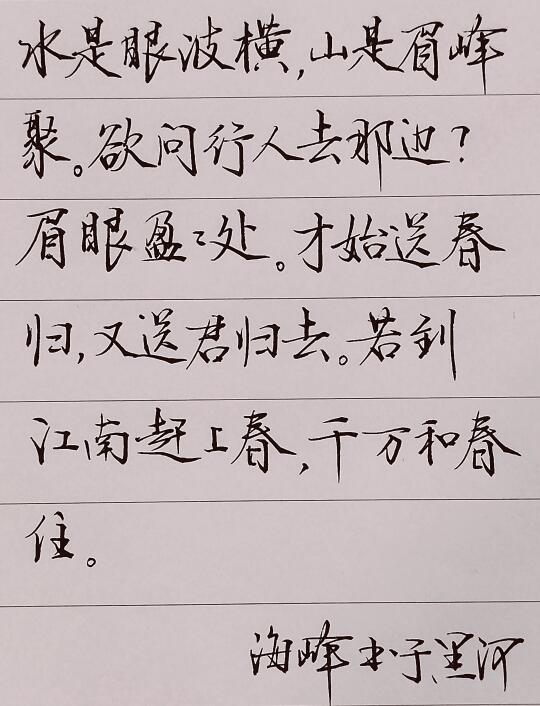 水是眼波横,山是眉峰
聚。欲问行人去那边?
眉眼盈〻处。才始送春
归,又送君归去。若到
江南赶上春,千万和春
住。
海峰书于黑河